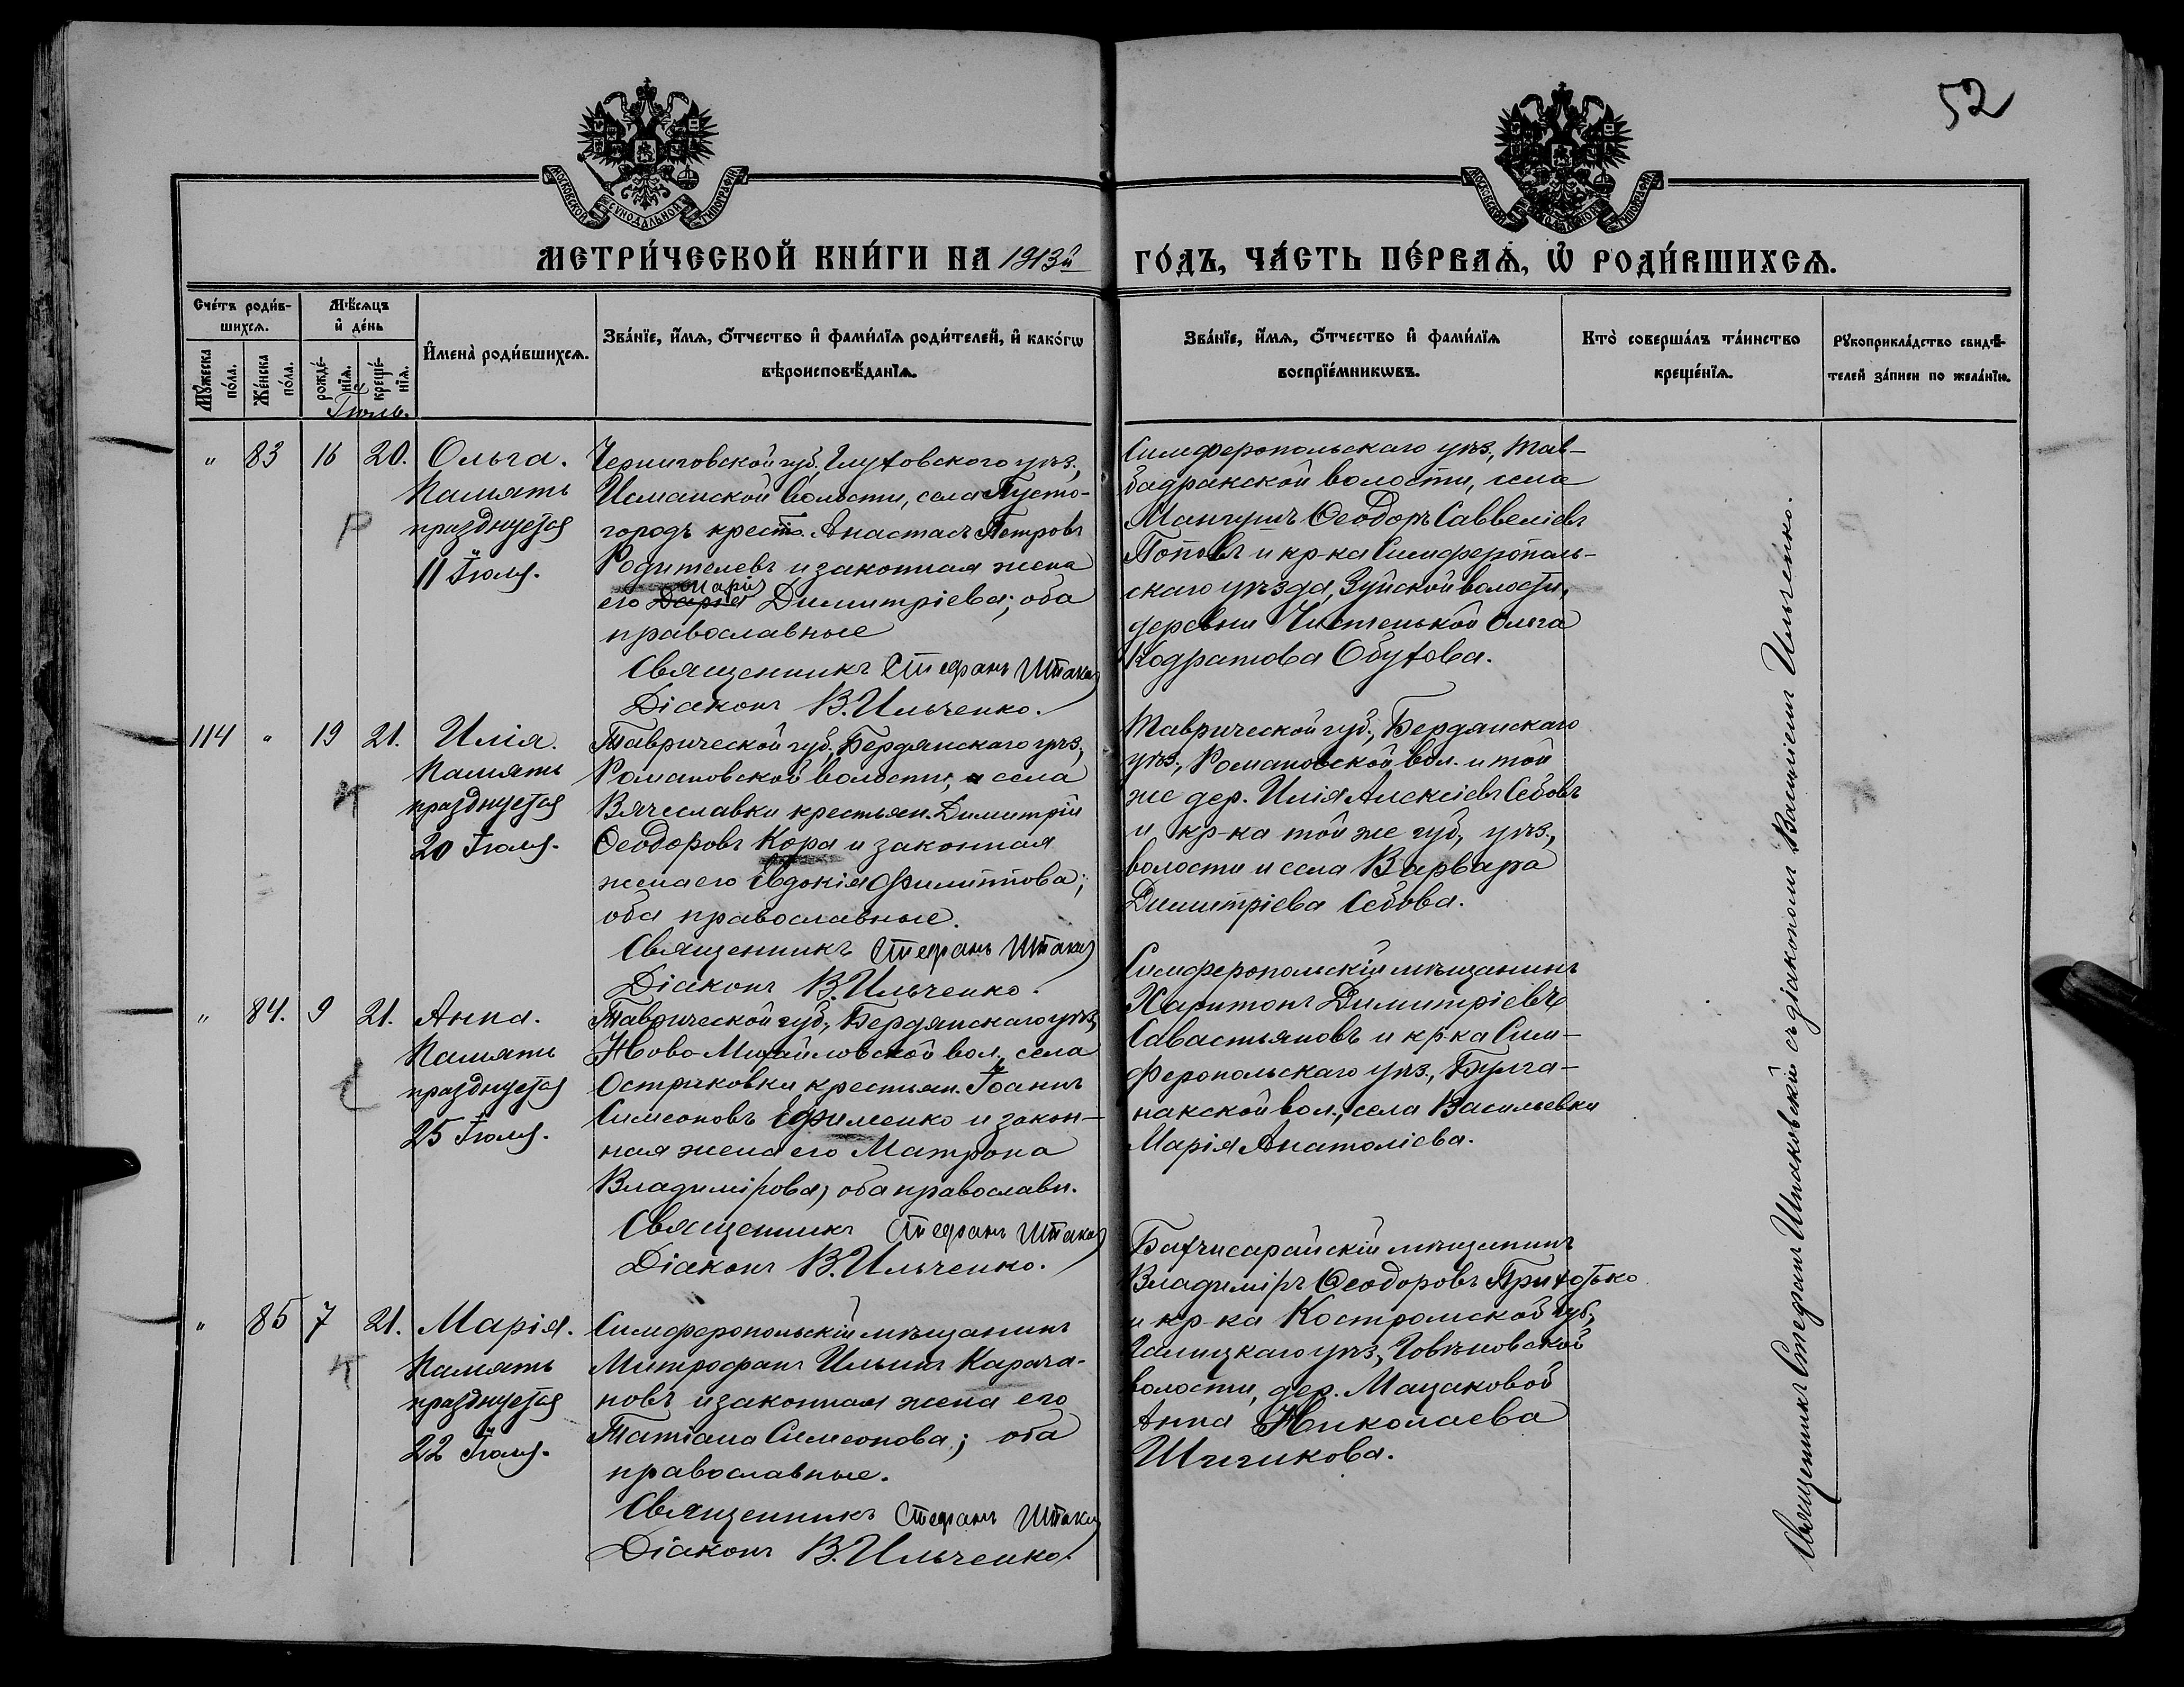 52
МОСКОВСКОЙ СѴНОДАЛЬНОЙ ТИПОГРАФІИ
МОСКОВСКОЙ СѴНОДАЛЬНОЙ ТИПОГРАФІИ
МЕТРИ́ЧЕСКОЙ КНИ́ГИ НА 1913й ГО́ДЪ, ЧА́СТЬ ПЕ́РВАѦ, Ѡ҆ РОДИ́ВШИХСѦ.
Сче́тъ роди́в-
шихсѧ.
Мꙋ́жеска
по́ла.
Же́нска
по́ла.
Мѣ́сѧцъ
и҆ де́нь
рожде́-
нїѧ.
креще́-
нїѧ.
И҆мена̀ роди́вшихсѧ.
Зва́нїе, и҆́мѧ, ѻ҆́тчество и҆ фами́лїѧ роди́телей, и҆ како́гѡ
вѣроисповѣ́данїѧ.
Зва́нїе, и҆́мѧ, ѻ҆́тчество и҆ фами́лїѧ
воспрїе́мникѡвъ.
Кто̀ соверша́лъ та́инство
креще́нїѧ.
Рꙋкоприкла́дство свидѣ́-
телей за́писи по жела́нїю.
Іюль.
" 83 16 20. Ольга.
Память
празднуется
11 Іюля.
Черниговской губ., Глуховского уѣз.,
Исманской волости, села Пусто-
городъ крест. Анастасъ Петровъ
Родителевъ и законная жена
его Дарія Марія Димитріева; оба
православные
Священникъ Стефанъ Шпаков
Діаконъ В. Ильченко.
Симферопольскаго уѣз., Тав-
бадракской волости, села
Мангушъ Ѳеодоръ Саввеліевъ
Поповъ и кр-ка Симферополь-
скаго уѣзда, Зуйской волости,
деревни Чистенькой Ольга
Кодратова Обухова.
114 " 19 21. Илія.
Память
празднуется
20 Іюля.
Таврической губ., Бердянскаго уѣз.,
Романовской волости, села
Вячеславки крестьян. Димитрій
Ѳеодоровъ Кора и законная
жена его Евдокія Филиппова;
оба православные.
Священникъ Стефанъ Шпаков
Діаконъ В. Ильченко.
Таврической губ., Бердянскаго
уѣз., Романовской вол. и той
же дер. Илія Алексіевъ Себовъ
и кр-ка той же губ., уѣз.,
волости и села Варвара
Димитріева Себова.
" 84. 9 21. Анна.
Память
празднуется
25 Іюля.
Таврической губ., Бердянскаго уѣз.
Ново-Михайловской вол., села
Остриковки крестьян. Іоаннъ
Симеоновъ Ефименко и закон-
ная жена его Матрона
Владимірова; оба православн.
Священникъ Стефанъ Шпаков
Діаконъ В. Ильченко.
Симферопольскій мѣщанинъ
Харитонъ Димитріевъ
Савастьяновъ и кр-ка Сим-
феропольскаго уѣз., Булга-
накской вол., села Васильевки
Марія Анатоліева.
" 85 7 21. Марія.
Память
празднуется
22 Іюля.
Симферопольскій мѣщанинъ
Митрофанъ Ильинъ Карача-
новъ и законная жена его
Татіана Симеонова; оба
православные.
Священникъ Стефанъ Шпаков
Діаконъ В. Ильченко.
Бахчисарайскій мѣщанинъ
Владиміръ Ѳеодоровъ Приходько
и кр-ка Костромской губ.,
Галицкаго уѣз., Говѣновской
волости, дер. Мацаковой
Анна Николаева
Шигикова.
Священникъ Стефанъ Шпаковскій съ діакономъ Василіемъ Ильченко.